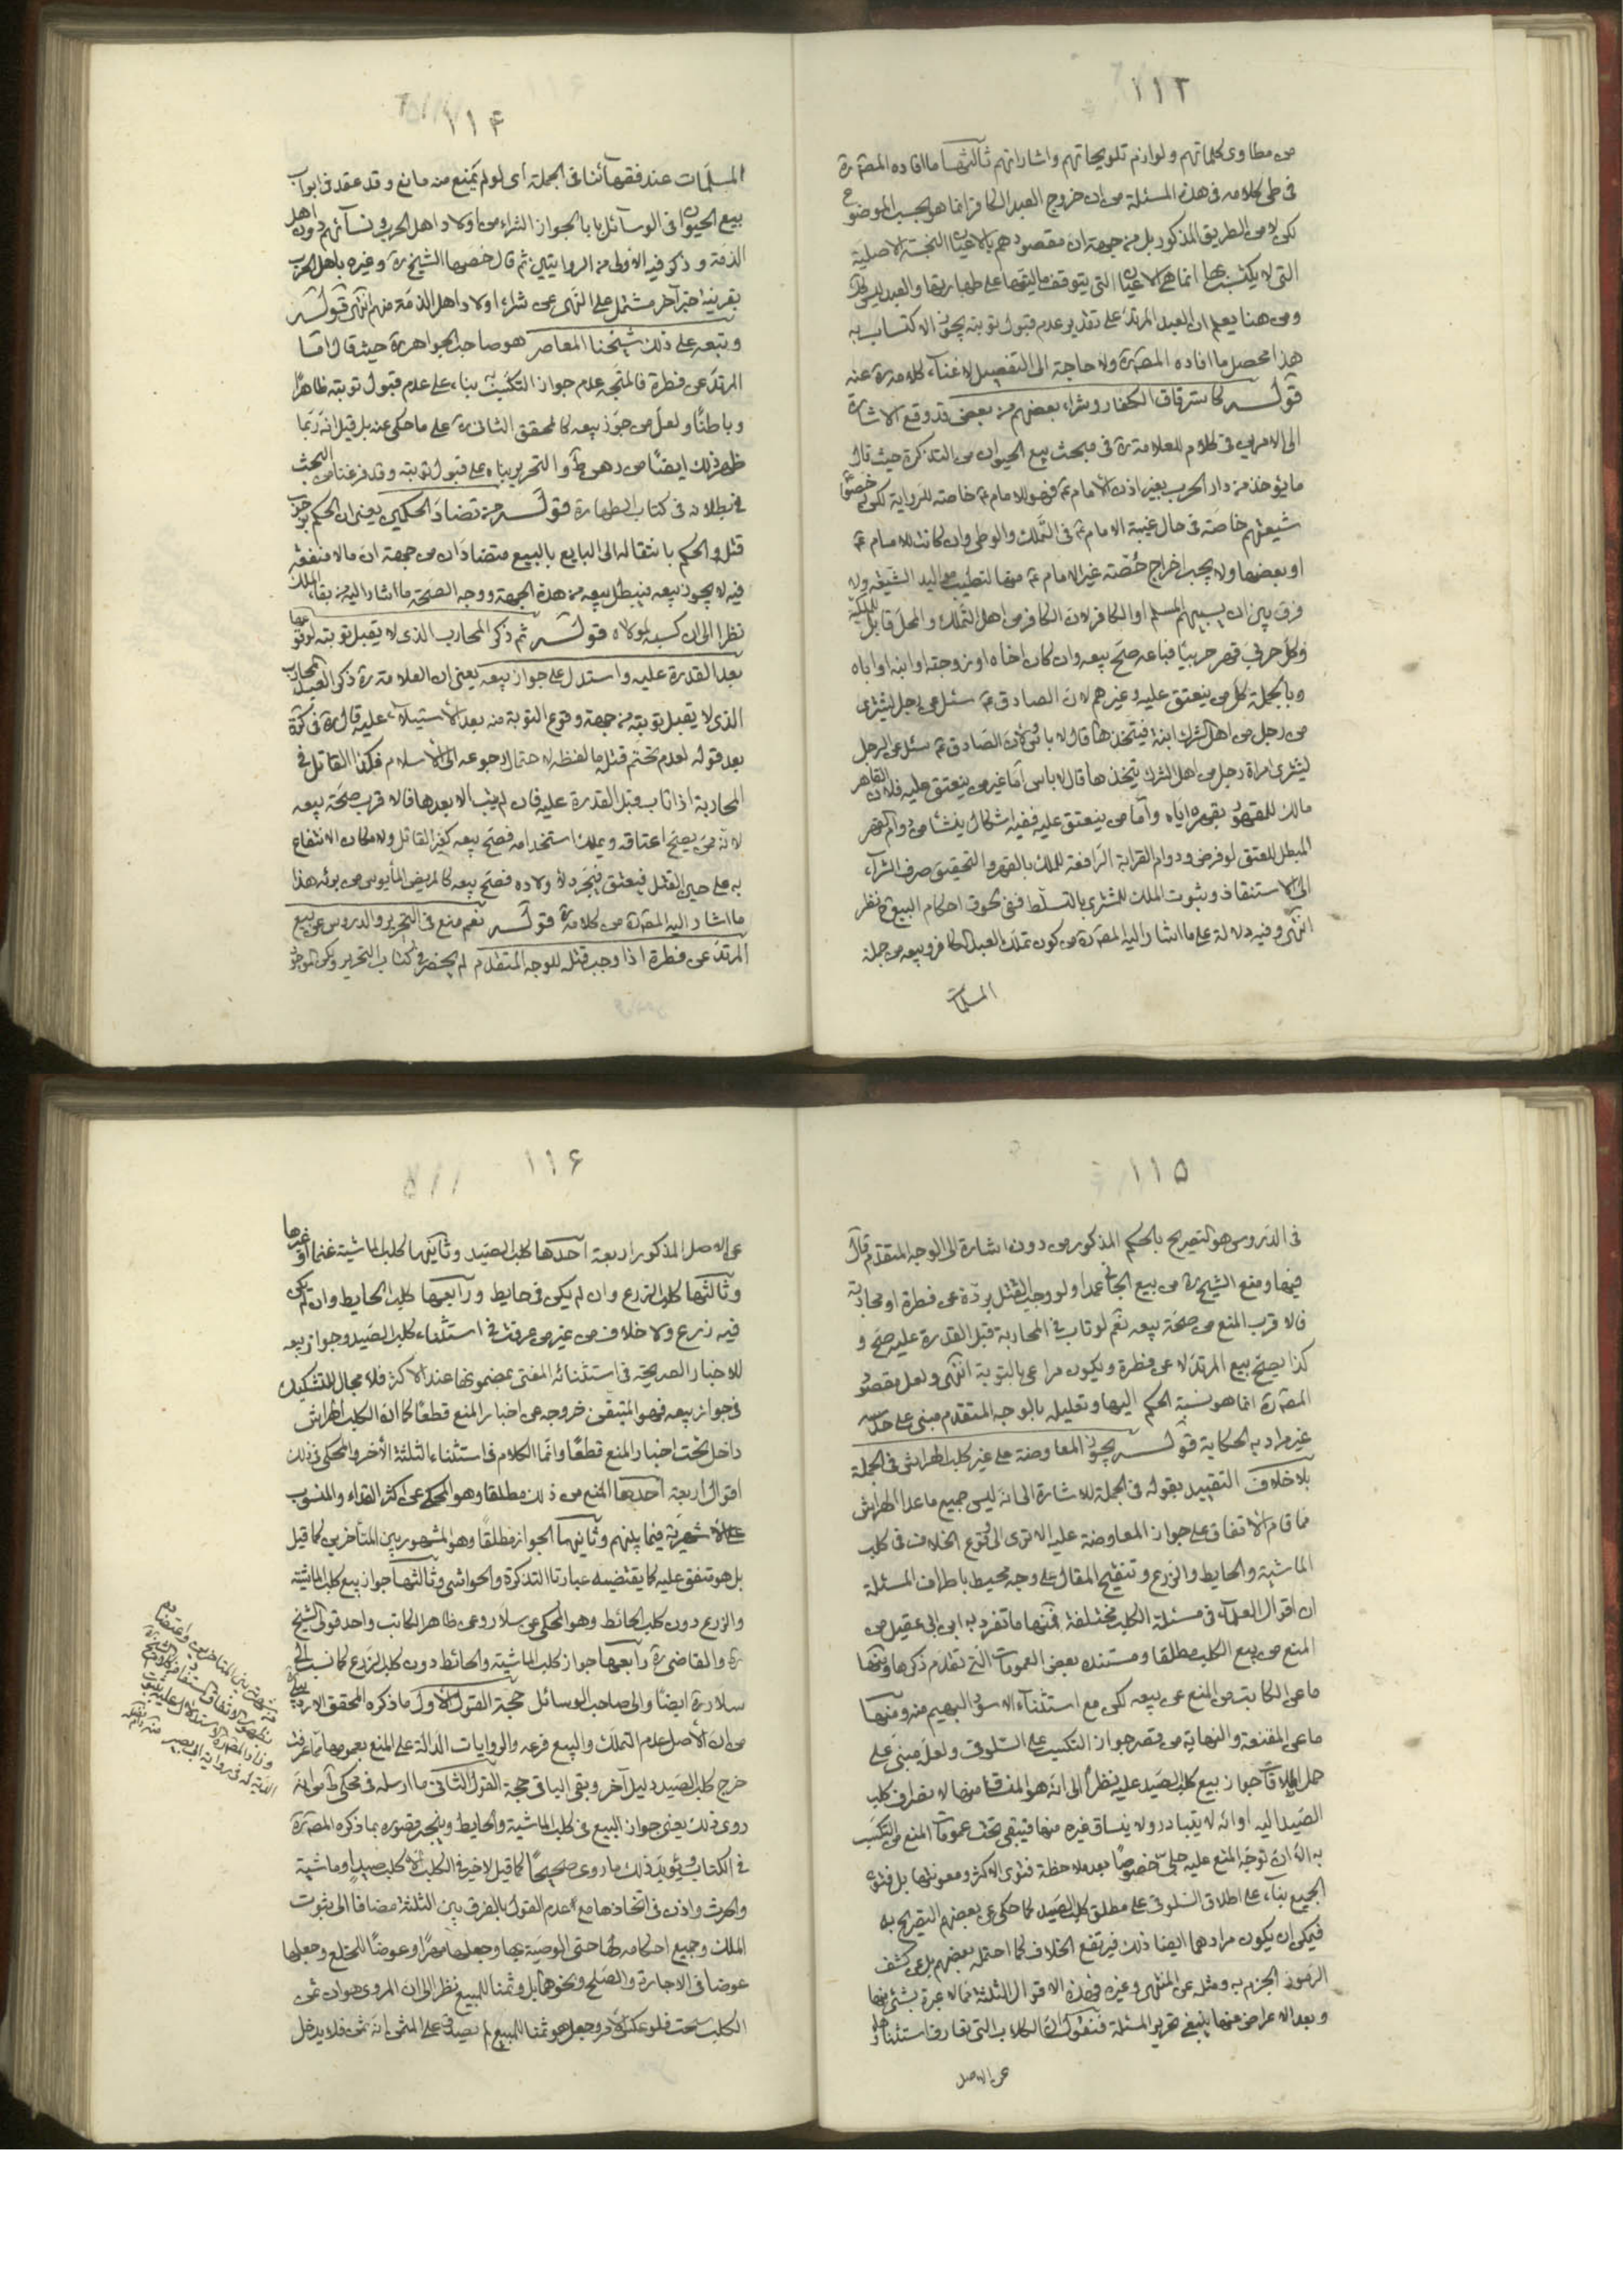 ١١٣
من مطاوى كلماتهم ولوازم تلويحاتهم واشاراتهم ثالثها ما افاده المصره
فى طى كلامه فى هذه المسئلة من ان خروج العبد الكافر انما هو بحسب الموضوع
لكن لا من الطريق المذكور بل من جهة ان مقصودهم بالاعيان النجسة الاصلية
التى لا يكتسب بها انما هى الاعيان التى يتوقف منافعها على طهارتها والعبد ليس كك
ومن هنا يعلم ان العبد المرتد على تقدير عدم قبول توبته يجوز الاكتساب به
هذا محصل ما افاده المصره ولا حاجة الى التفصيل لاغناء كلامه ره عنه
قوله كاسترقاق الكفار وشراء بعضهم من بعض قد وقع الاشارة
الى الامرين فى كلام للعلامة ره فى مبحث بيع الحيوان من التذكرة حيث قال
ما يؤخذ من دار الحرب بغير اذن الامام ع فهو للامام ع خاصة للرواية لكن رخصوا
شيعتهم خاصة فى حال غيبة الامام ع فى التملك والوطى وان كانت للامام ع
او بعضها ولا يجب اخراج حصته غير الامام ع منها لتطيب مواليد الشيعة ولا
فرق بين ان يسبيهم المسلم او الكافر لان الكافر من اهل التملك والمحل قابل للملكية
وكل حربى قهر حربيا فباعه صح بيعه وان كان اخاه او زوجته او ابنه او اباه
وبالجملة كل من ينعتق عليه وغيرهم لان الصادق ع سئل عن رجل يشترى
من رجل من اهل الشرك ابنته فيتخذها قال لا باس ولان الصادق ع سئل عن الرجل
يشترى امراة رجل من اهل الشرك يتخذها قال لا باس اما غير من ينعتق عليه فلان القاهر
مالك للمقهور بقهره اياه واما من ينعتق عليه ففيه اشكال ينشا من دوام القهر
المبطل للعتق لو فرض ودوام القرابة الرافعة للملك بالقهر والتحقيق صرف الشراء
الى الاستنقاذ وثبوت الملك للمشترى بالتسلط ففى لحوق احكام البيع ح نظر
انتهى وفيه دلالة على ما اشار اليه المصره من كون تملك العبد الكافر وبيعه من جملة
المسلمات
١١۴
المسلمات عند فقهائنا فى الجملة اى لو لم يمنع منه مانع وقد عقد فى ابواب
بيع الحيوان فى الوسائل بابا لجواز الشراء من اولاد اهل الحرب ونسائهم دون اهل
الذمة وذكر فيه الاولى من الروايتين ثم قال خصها الشيخ ره وغيره باهل الحرب
بقرينة خبر آخر مشتمل على النهى عن شراء اولاد اهل الذمة منهم انتهى قوله
وتبعه على ذلك شيخنا المعاصر هو صاحب الجواهر ره حيث قال اما
المرتد عن فطرة فالمتجه عدم جواز التكسب به بناء على عدم قبول توبته ظاهرا
وباطنا ولعل من جوز بيعه كالمحقق الثانى ره على ما حكى عنه بل قيل انه ربما
ظهر ذلك ايضا من والتحرير بناه على قبول توبته وقد فرغنا من البحث
فى بطلانه فى كتاب الطهارة قوله من تضاد الحكمين يعنى ان الحكم بوجوب
قتله والحكم بانتقاله الى البايع بالبيع متضادان من جهة ان ما لا منفعة
فيه لا يجوز بيعه فيبطل بيعه من هذه الجهة ووجه الصحة ما اشار اليه من بقاء الملك
نظرا الى ان كسبه لمولاه قوله ثم ذكر المحارب الذى لا يقبل توبته لوقوعها
بعد القدرة عليه واستدل على جواز بيعه يعنى ان العلامة ره ذكر العبد المحارب
الذى لا يقبل توبته من جهة وقوع التوبة منه بعد الاستيلاء عليه قال ره فى كرة
بعد قوله لعدم تحتم قتله ما لفظه لاحتمال رجوعه الى الاسلام فكذا القاتل فى
المحاربة اذا تاب قبل القدرة عليه فان لم يتب الا بعدها فالاقرب صحة بيعه
لانه ممن يصح اعتاقه ويملك استخدامه فصح بيعه كغير القاتل ولامكان الانتفاع
به على حين القتل فيعتق فينجر ولاء اولاده فصح بيعه كالمريض المأيوس من برئه هذا
ما اشار اليه المصره من كلامه قوله نعم منع فى التحرير والدروس عن بيع
المرتد عن فطرة اذا وجب قتله للوجه المتقدم لم يحضرنى كتاب التحرير ولكن الموجود
١١۵
فى الدروس هو التصريح بالحكم المذكور من دون اشارة الى الوجه المتقدم قال
فيها ومنع الشيخ ره من بيع الجانى عمدا ولو وجب القتل بردة عن فطرة او محاربة
فالاقرب المنع من صحة بيعه نعم لو تاب فى المحاربة قبل القدرة عليه صح و
كذا يصح بيع المرتد لا عن فطرة ويكون مراعى بالتوبة انتهى ولعل مقصود
المصره انما هو نسبة الحكم اليها وتعليله بالوجه المتقدم مبنى على حدسه
غير مراد به الحكاية قوله يجوز المعاوضة على غير كلب الهراش فى الجملة
بلا خلاف التقييد بقوله فى الجملة للاشارة الى انه ليس جميع ما عدا الهراش
مما قام الاتفاق على جواز المعاوضة عليه الا ترى الى وقوع الخلاف فى كلب
الماشية والحايط والزرع وتنقيح المقال على وجه محيط باطراف المسئلة
ان اقوال العلماء فى مسئلة الكلب مختلفة فمنها ما تفرد به ابن ابى عقيل من
المنع من بيع الكلب مطلقا ومستنده بعض العمومات التى تقدم ذكرها ومنها
ما عن الكاتب من المنع عن بيعه لكن مع استثناء الاسود البهيم منه ومنها
ما عن المقنعة والنهاية من قصر جواز التكسب على السلوقى ولعله مبنى على
حمل اطلاقات جواز بيع كلب الصيد عليه نظرا الى انه هو المنساق منها لانصراف كلب
الصيد اليه او انه لا يتبادر ولا ينساق غيره منها فيبقى تحت عمومات المنع من التكسب
به الا ان توجه المنع عليه جلى خصوصا بعد ملاحظة فتوى الاكثر ومعروفيتها بل فتوى
الجميع بناء على اطلاق السلوقى على مطلق كلب الصيد كما حكى عن بعضهم التصريح به
فيمكن ان يكون مرادهما ايضا ذلك فيرتفع الخلاف كما احتمله بعضهم بل عن كشف
الرموز الجزم به ومثله عن المنتهى وغيره فهذه الاقوال الثلثة مما لا عبرة بشئ منها
وبعد الاعراض عنها ينبغى تحرير المسئلة فنقول ان الكلاب التى تعارف استثناؤها
عن الاصل
١١۶
عن الاصل المذكور اربعة احدها كلب الصيد وثانيها كلب الماشية غنما او غيرها
وثالثها كلب الزرع وان لم يكن فى حايط ورابعها كلب الحايط وان لم يكن
فيه زرع ولا خلاف من غير من عرفت فى استثناء كلب الصيد وجواز بيعه
للاخبار الصريحة فى استثنائه المفتى بمضمونها عند الاكثر فلا مجال للتشكيك
فى جواز بيعه فهو المتيقن خروجه عن اخبار المنع قطعا كما ان الكلب الهراش
داخل تحت اخبار المنع قطعا وانما الكلام فى استثناء الثلثة الأخر والمحكى فى ذلك
اقوال اربعة احدها المنع من ذلك مطلقا وهو المحكى عن اكثر القدماء والمنسوب
على الاشهرية فيما بينهم وثانيها الجواز مطلقا وهو المشهور بين المتأخرين كما قيل
بل هو متفق عليه كما يقتضيه عبارتا التذكرة والحواشى وثالثها جواز بيع كلب الماشية
والزرع دون كلب الحائط وهو المحكى عن سلار وعن ظاهر الكاتب واحد قولى الشيخ
ره والقاضى ره رابعها جواز كلب الماشية والحائط دون كلب الزرع كما نسب الى
سلار ره ايضا والى صاحب الوسائل حجة القول الاول ما ذكره المحقق الاردبيلى ره
من ان الأصل عدم التملك والبيع فرعه والروايات الدالة على المنع بعمومها مما عرفت
خرج كلب الصيد بدليل آخر وبقى الباقى حجة القول الثانى ما ارسله فى محكى ط من انه
روى ذلك يعنى جواز البيع فى كلب الماشية والحايط وينجبر قصوره بما ذكره المصره
فى الكتاب ويؤيد ذلك ما روى صحيحا كما قيل لا خير فى الكلب الا كلب صيد او ماشية
والحرث واذن فى اتخاذها مع عدم القول بالفرق بين الثلثة مضافا الى ثبوت
الملك وجميع احكامه لها حتى الوصية بها وجعلها مهرا وعوضا للخلع وجعلها
عوضا فى الاجارة والصلح ونحوها بل وثمنا للمبيع نظرا الى ان المروى هو ان ثمن
الكلب سحت فلو عكس الامر وجعل هو ثمنا للمبيع لم يصدق على المثمن انه ثمن فلا يدخل